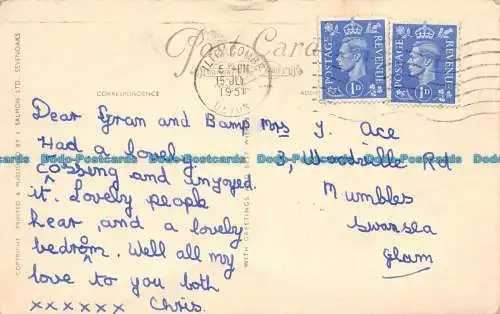 Post Card
ILFRACOMBE
15 JLY
1951
DEVON
POSTAGE REVENUE
1D
POSTAGE REVENUE
1D
CORRESPONDENCE
ADD
COPYRIGHT PRINTED & PUBLISHED BY J. SALMON LTD. SEVENOAKS
WITH GREETINGS
BEST WISHES
Dear Gran and Bamp
Had a lovely
cossing and injoyed
it. Lovely people
hear and a lovely
bedroom. Well all my
love to you both
xxxxxx Chris.
Mrs J. Ace
3, Woodville Rd
Mumbles
Swansea
Glam
Dodo-Postcards Dodo-Postcards Dodo-Postcards